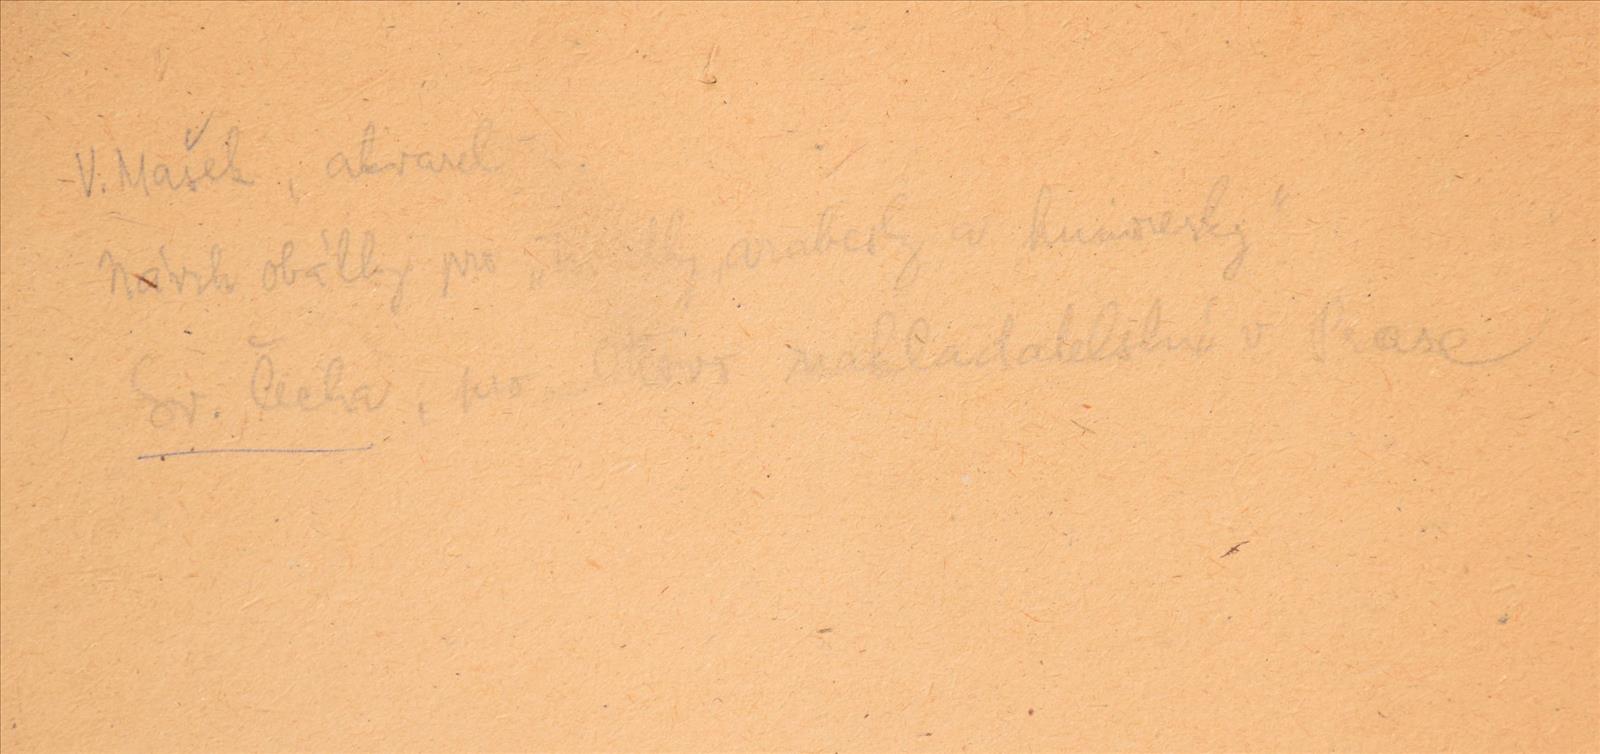 V. Mašek, akvarel
Návrh obálky pro „ arabesky a humoresky“
Sv. Čecha, pro Ottovo nakladatelství v Praze